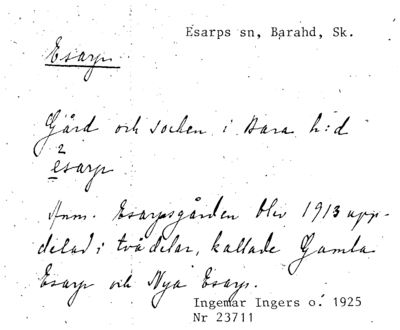 Esarps sn, Barahd, Sk.
Esarp
Gård och socken i Bara h:d
2
esarp
Anm. Esarpsgården blev 1913 upp-
delad i två delar, kallade Gamla
Esarp och Nya Esarp.
Ingemar Ingers o. 1925
Nr 23711